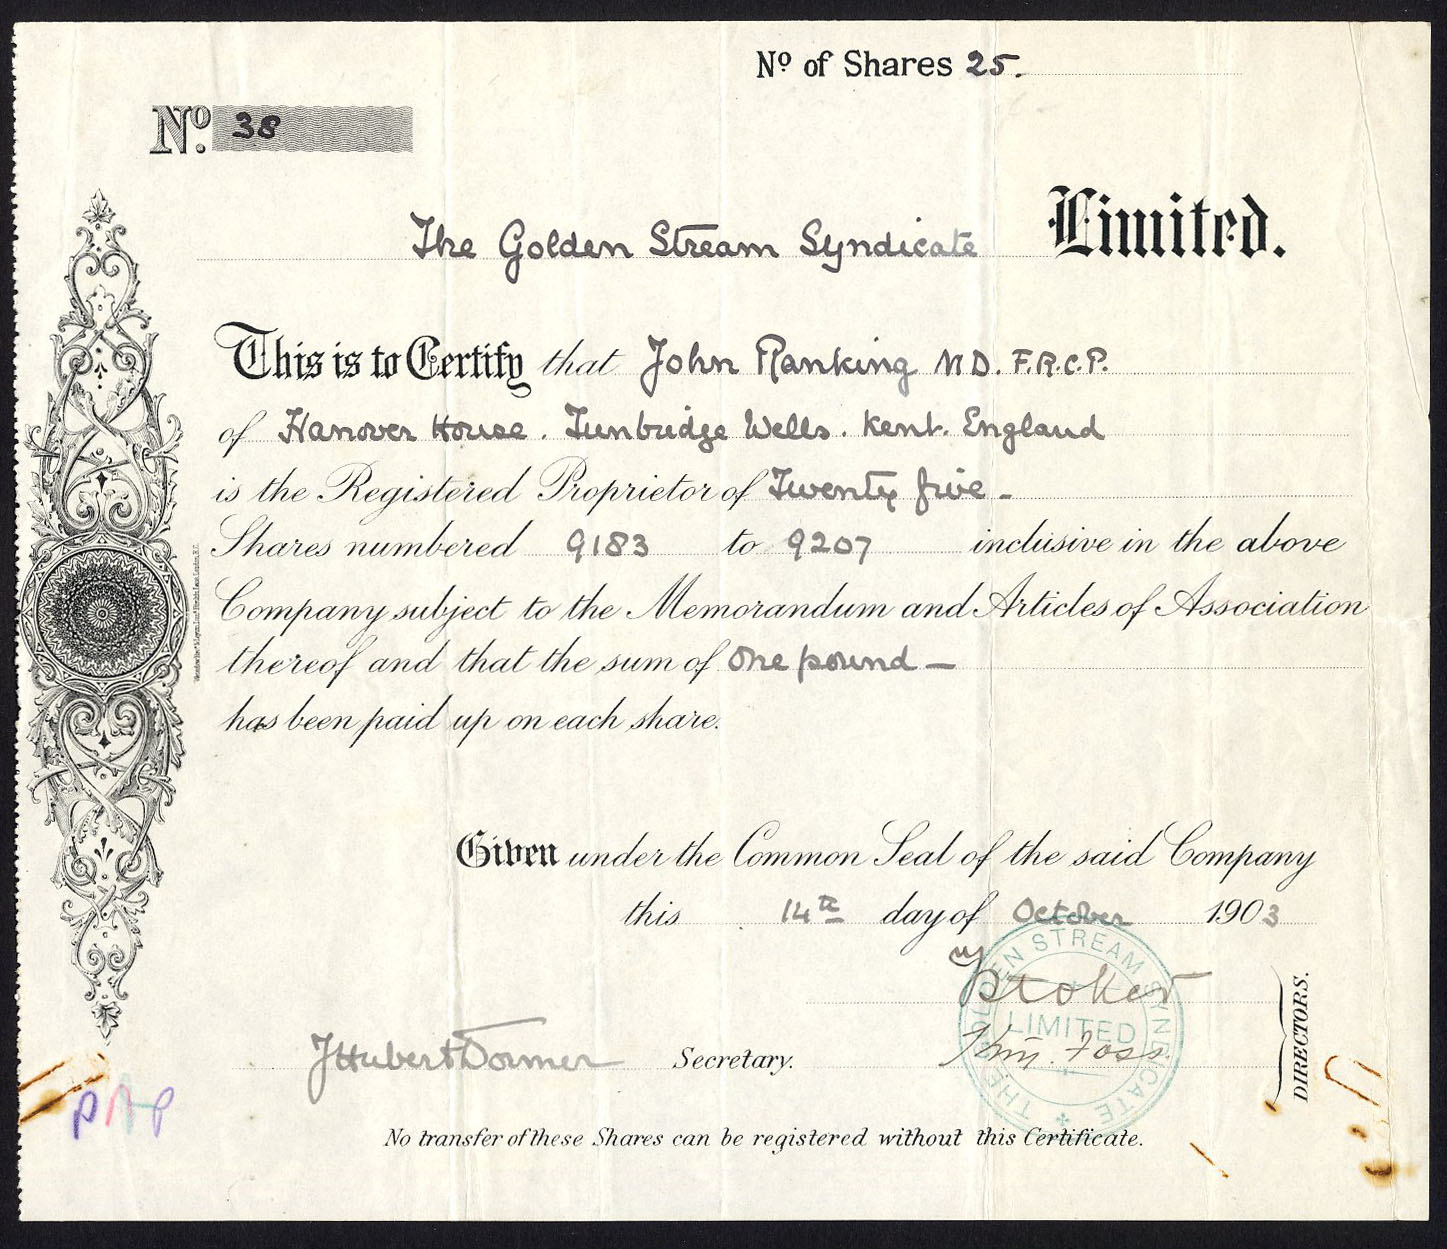 Nº of Shares 25.
Nº. 38
The Golden Stream Syndicate Limited.
This is to Certify that John Ranking M D. F.R.C.P.
of Hanover House. Tunbridge Wells. Kent. England
is the Registered Proprietor of Twenty five -
Shares numbered 9183 to 9207 inclusive in the above
Company subject to the Memorandum and Articles of Association
thereof and that the sum of One pound —
has been paid up on each share.
Given under the Common Seal of the said Company
this 14th day of October 1903
Stoker
Wm. Foss
DIRECTORS.
THE GOLDEN STREAM SYNDICATE
LIMITED
J Hubert Dormer Secretary.
No transfer of these Shares can be registered without this Certificate.